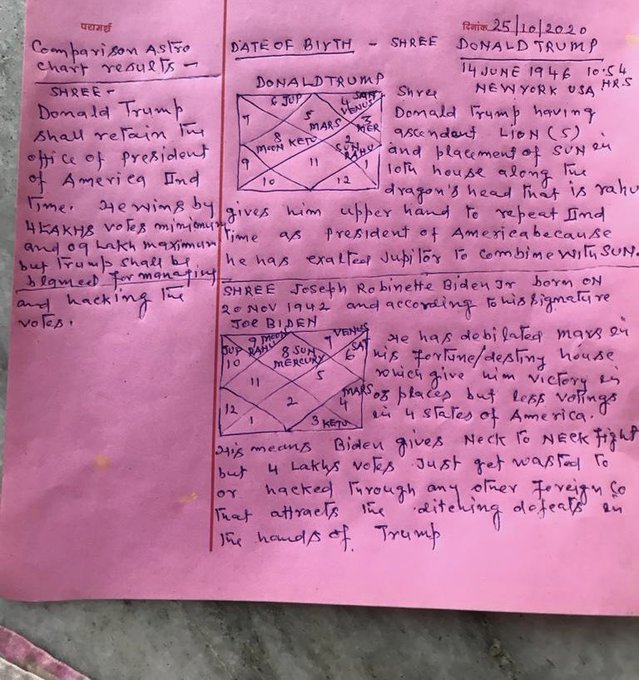 पदार्थ
दिनांक 25/10/2020
Comparison Astro
chart results -
SHREE -
Donald Trump
shall retain the
office of president
of America IInd
time. He wins by
4 LAKHS votes minimum
and 09 Lakh maximum
but Trump shall be
blamed for managing
and hacking the
votes.
DATE OF BIRTH - SHREE DONALD TRUMP
14 JUNE 1946 10:54
HRS
NEWYORK USA
DONALD TRUMP
6 JUP
4 SAT
VENUS
7
5
MARS
3
MER
8
MOON KETU
2
SUN
RAHU
9
11
1
10
12
Shree
Donald Trump having
ascendent LION (5)
and placement of SUN in
10th house along the
dragon's head that is rahu
gives him upper hand to repeat IInd
time as president of America because
he has exalted Jupitor to combine with SUN.
SHREE Joseph Robinette Biden Jr born ON
20 NOV 1942 and according to his signature
JOE BIDEN
JUP
10
9 MOON
RAHU
8 SUN
MERCURY
7 VENUS
6 SAT
11
5
12
2
4
MARS
1
3 KETU
He has debilated mars in
his fortune/destiny house
which give him victory in
places but less votings
in 4 states of America.
His means Biden gives Neck to Neck fight
but 4 Lakhs votes Just get wasted to
or hacked through any other foreign Co
that attracts the ditching defeats in
the hands of Trump